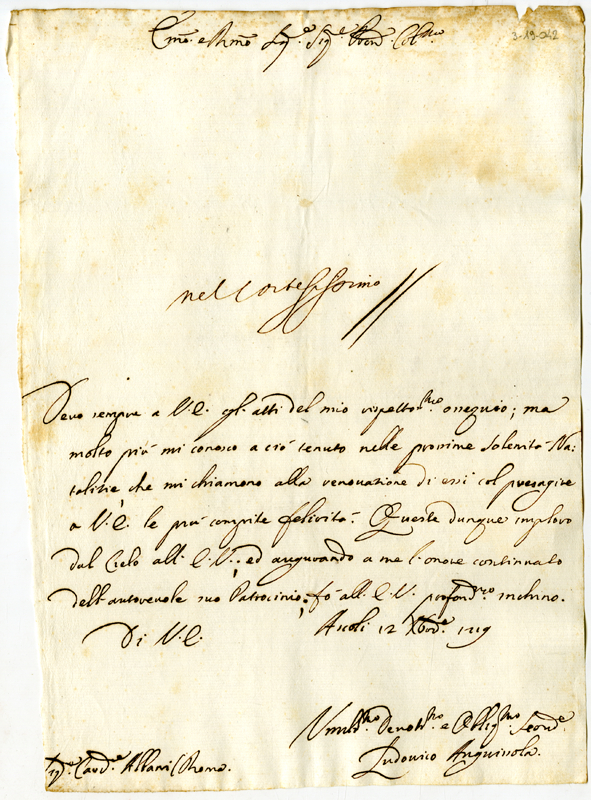 Emo. e Rmo. Sig.e Sig.e Pron. Col.mo
3-19-042
nel Cortesissimo //
Devo sempre a V.E. gl'atti del mio rispetto.mo ossequio; ma
molto più mi conosco a ciò tenuto nelle prossime Solennità Na:
talitie, che mi chiamono alla renovazione di essi col presagire
a V.E. le più compite felicità. Queste dunque imploro
dal Cielo all'E.V., ed augurando a me l'onore continuato
dell'autorevole suo Patrocinio, fò all'E.V. profond.mo inchino.
Di V.E. Ascoli 12 Xbre. 1719
Umil.mo Devot.mo e Obblig.mo Serv.e
Ludovico Anguissola.
Sig.e Card.e Albani (Roma.